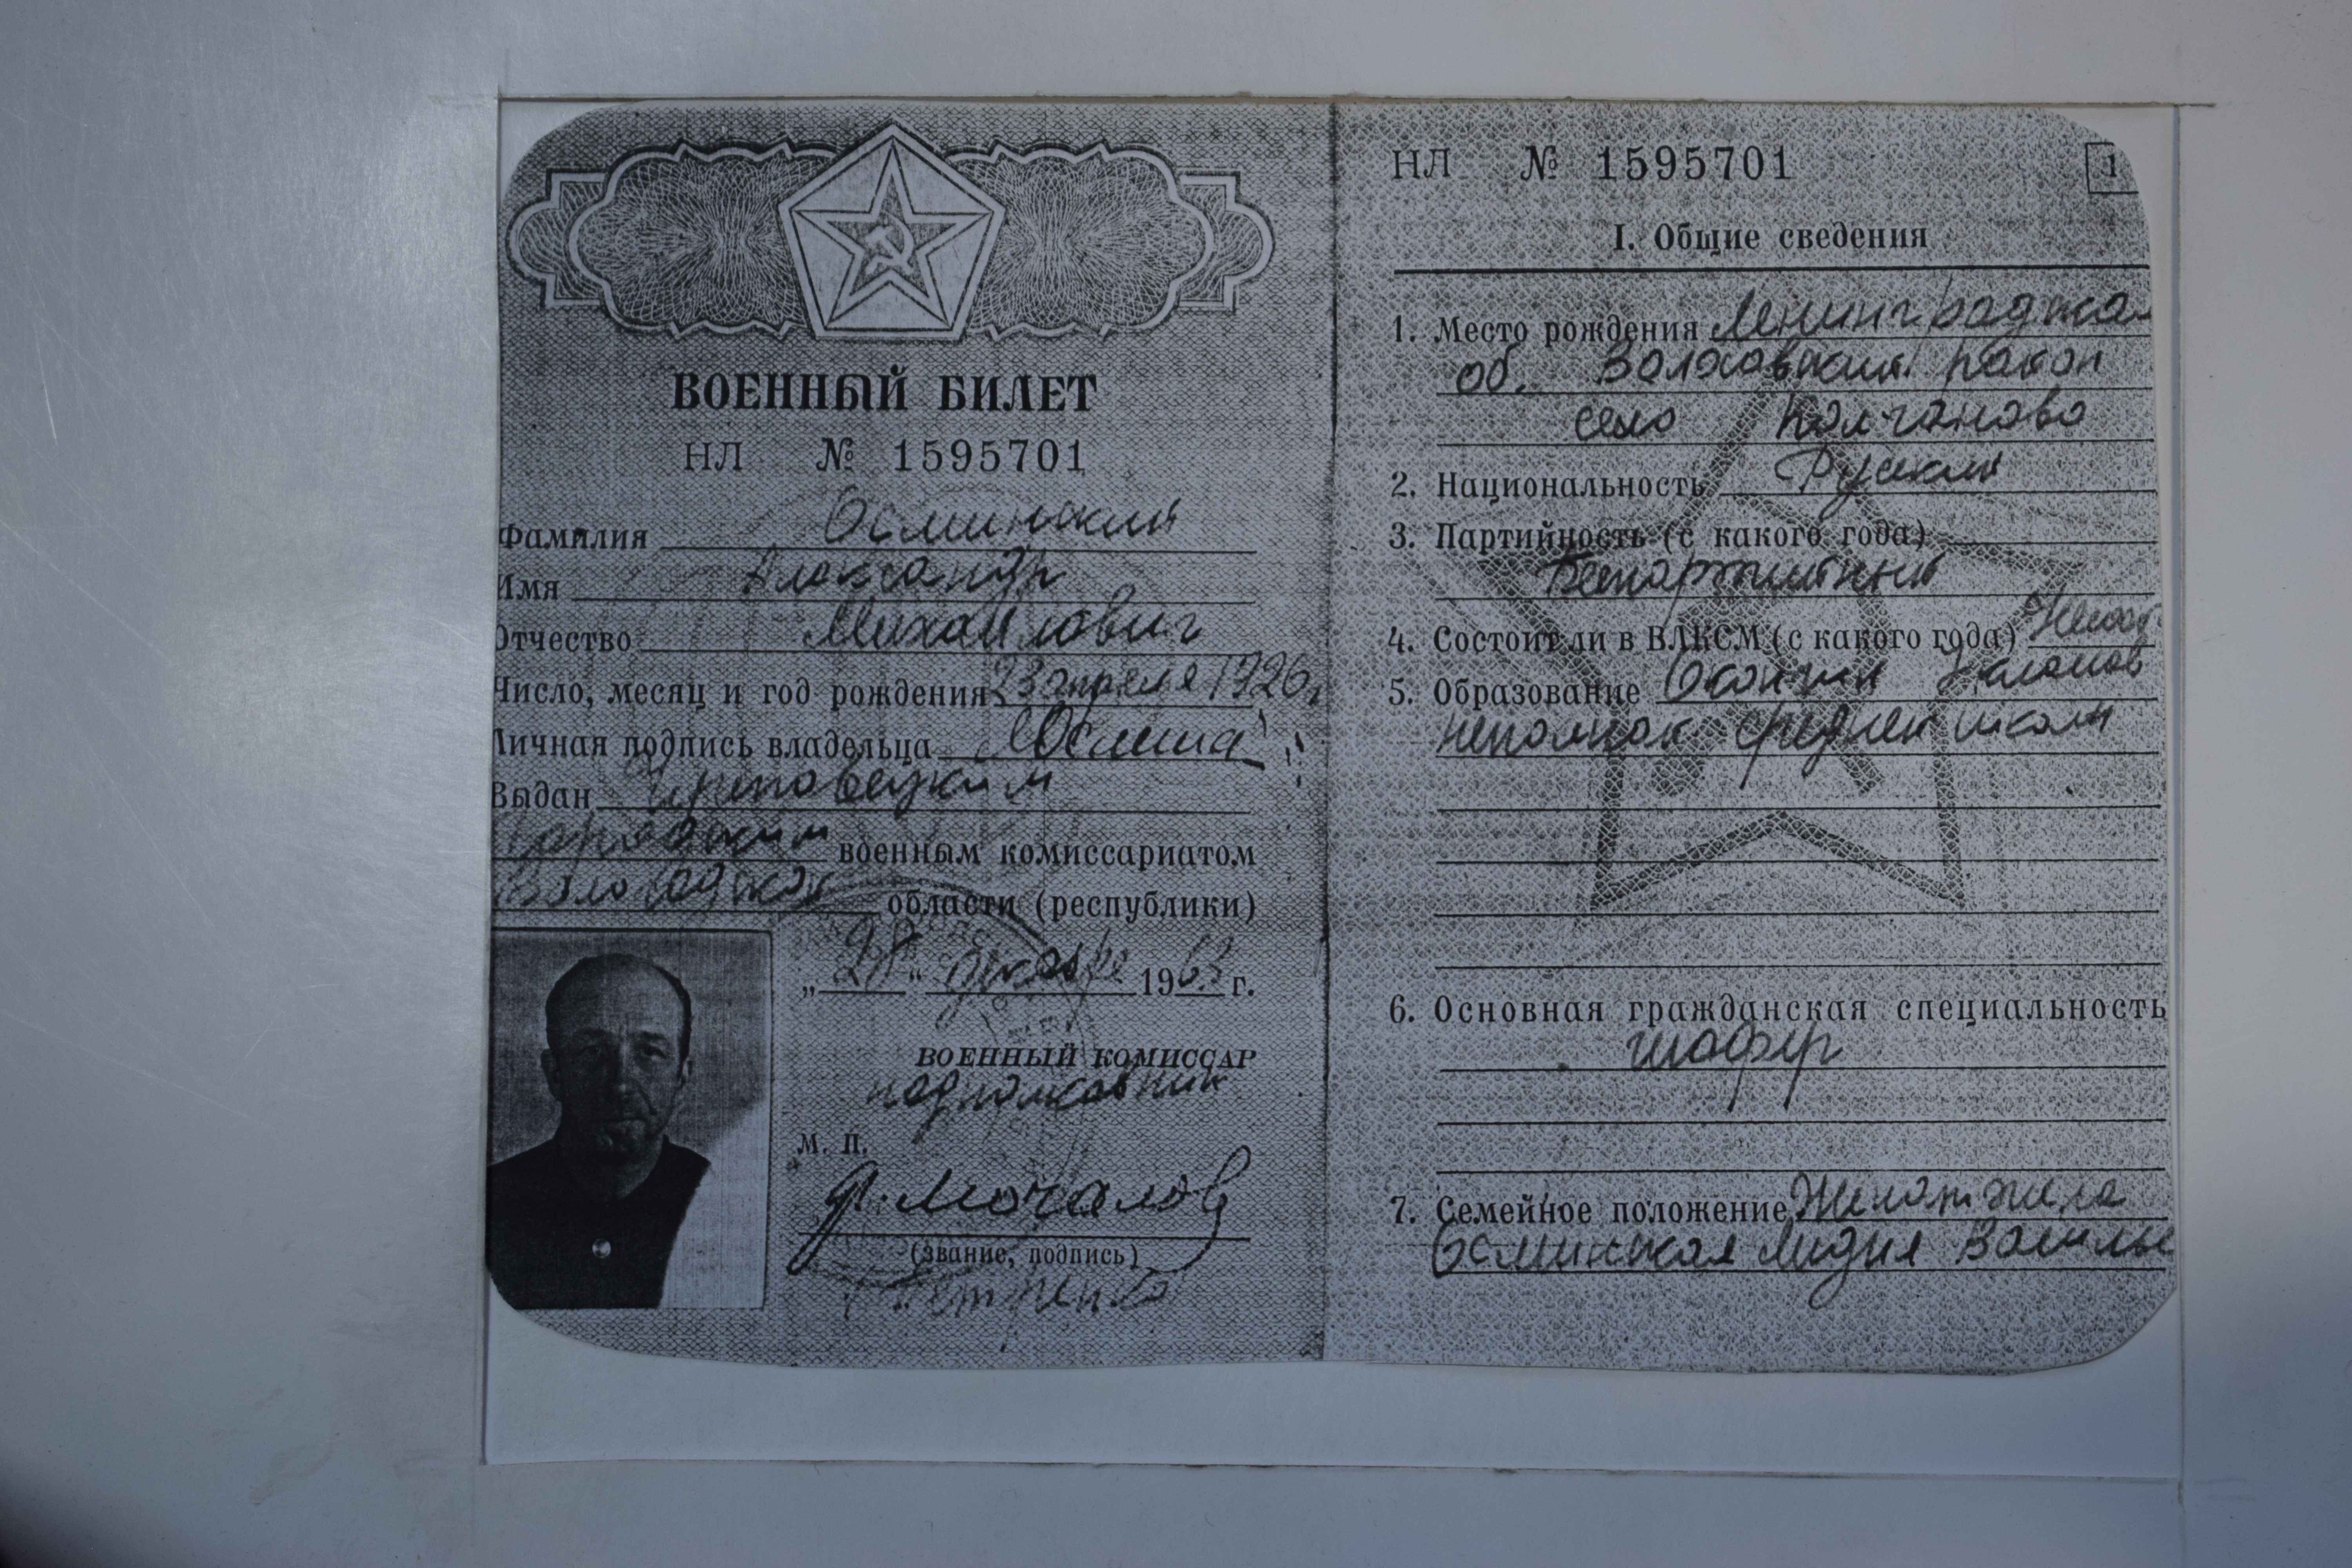 ВОЕННЫЙ БИЛЕТ
НЛ № 1595701
Фамилия Осминский
Имя Александр
Отчество Михайлович
Число, месяц и год рождения 23 апреля 1926 г.
Личная подпись владельца
Выдан Череповецким
Городским военным комиссариатом
Вологодской области (республики)
„28“ декабря 1963 г.
ВОЕННЫЙ КОМИССАР
подполковник
М. П.
Мочалов
(звание, подпись)
Петренко
НЛ № 1595701
1
I. Общие сведения
1. Место рождения Ленинградская
об. Волховский район
село Колчаново
2. Национальность Русский
3. Партийность (с какого года)
Беспартийный
4. Состоит ли в ВЛКСМ (с какого года)
5. Образование Окончил 7 классов
неполной средней школы
6. Основная гражданская специальность
шофер
7. Семейное положение Женат жена
Осминская Лидия Василье